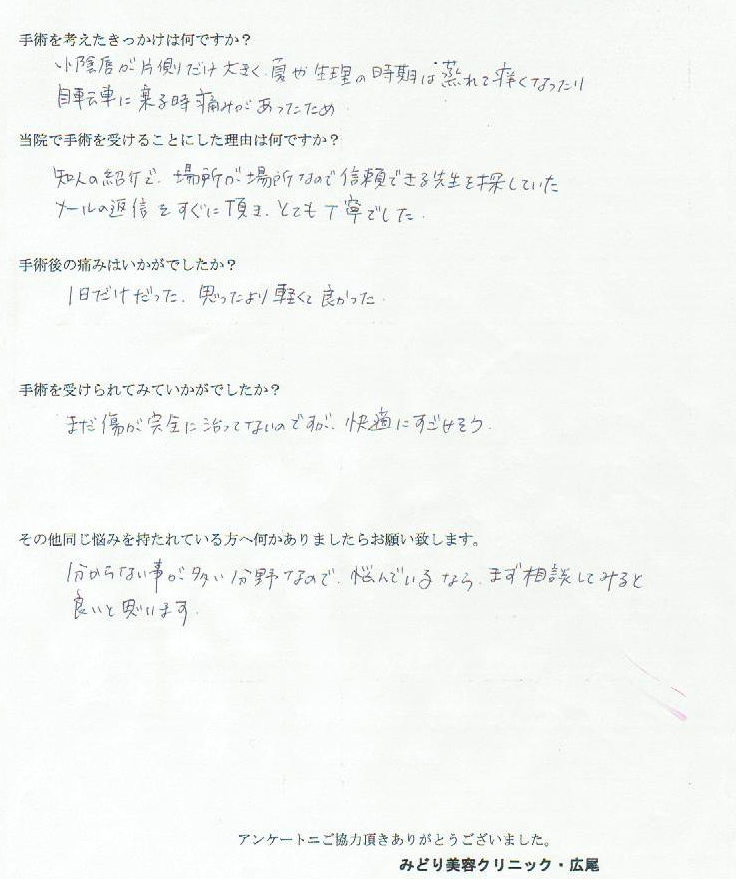 手術を考えたきっかけは何ですか？
小陰唇が片側だけ大きく、夏や生理の時期は蒸れて痒くなったり
自転車に乗る時痛みがあったため.
当院で手術を受けることにした理由は何ですか？
知人の紹介で、場所が場所なので信頼できる先生を探していた
メールの返信をすぐに頂き、とても丁寧でした.
手術後の痛みはいかがでしたか？
1日だけだった、思ったより軽くて良かった.
手術を受けられてみていかがでしたか？
まだ傷が完全に治ってないのですが、快適にすごせそう.
その他同じ悩みを持たれている方へ何かありましたらお願い致します。
分からない事が多い分野なので、悩んでいるなら、まず相談してみると
良いと思います.
アンケートニご協力頂きありがとうございました。
みどり美容クリニック・広尾